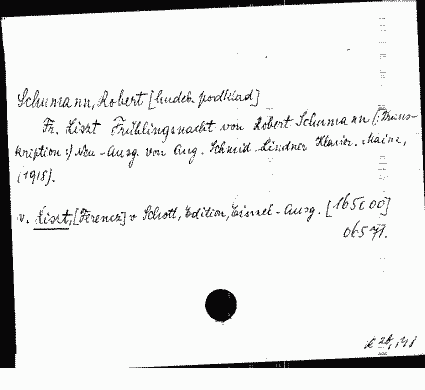 Schumann, Robert [hudeb. podklad]
Fr. Liszt Frühlingsnacht von Robert Schumann (:Trans-
kription:) Neu-Ausg. von Aug. Schmid-Lindner Klavier. Mainz,
(1918).
v. Liszt, [Ferenc] v Schott, Edition, Einzel-Ausg. [
06571.